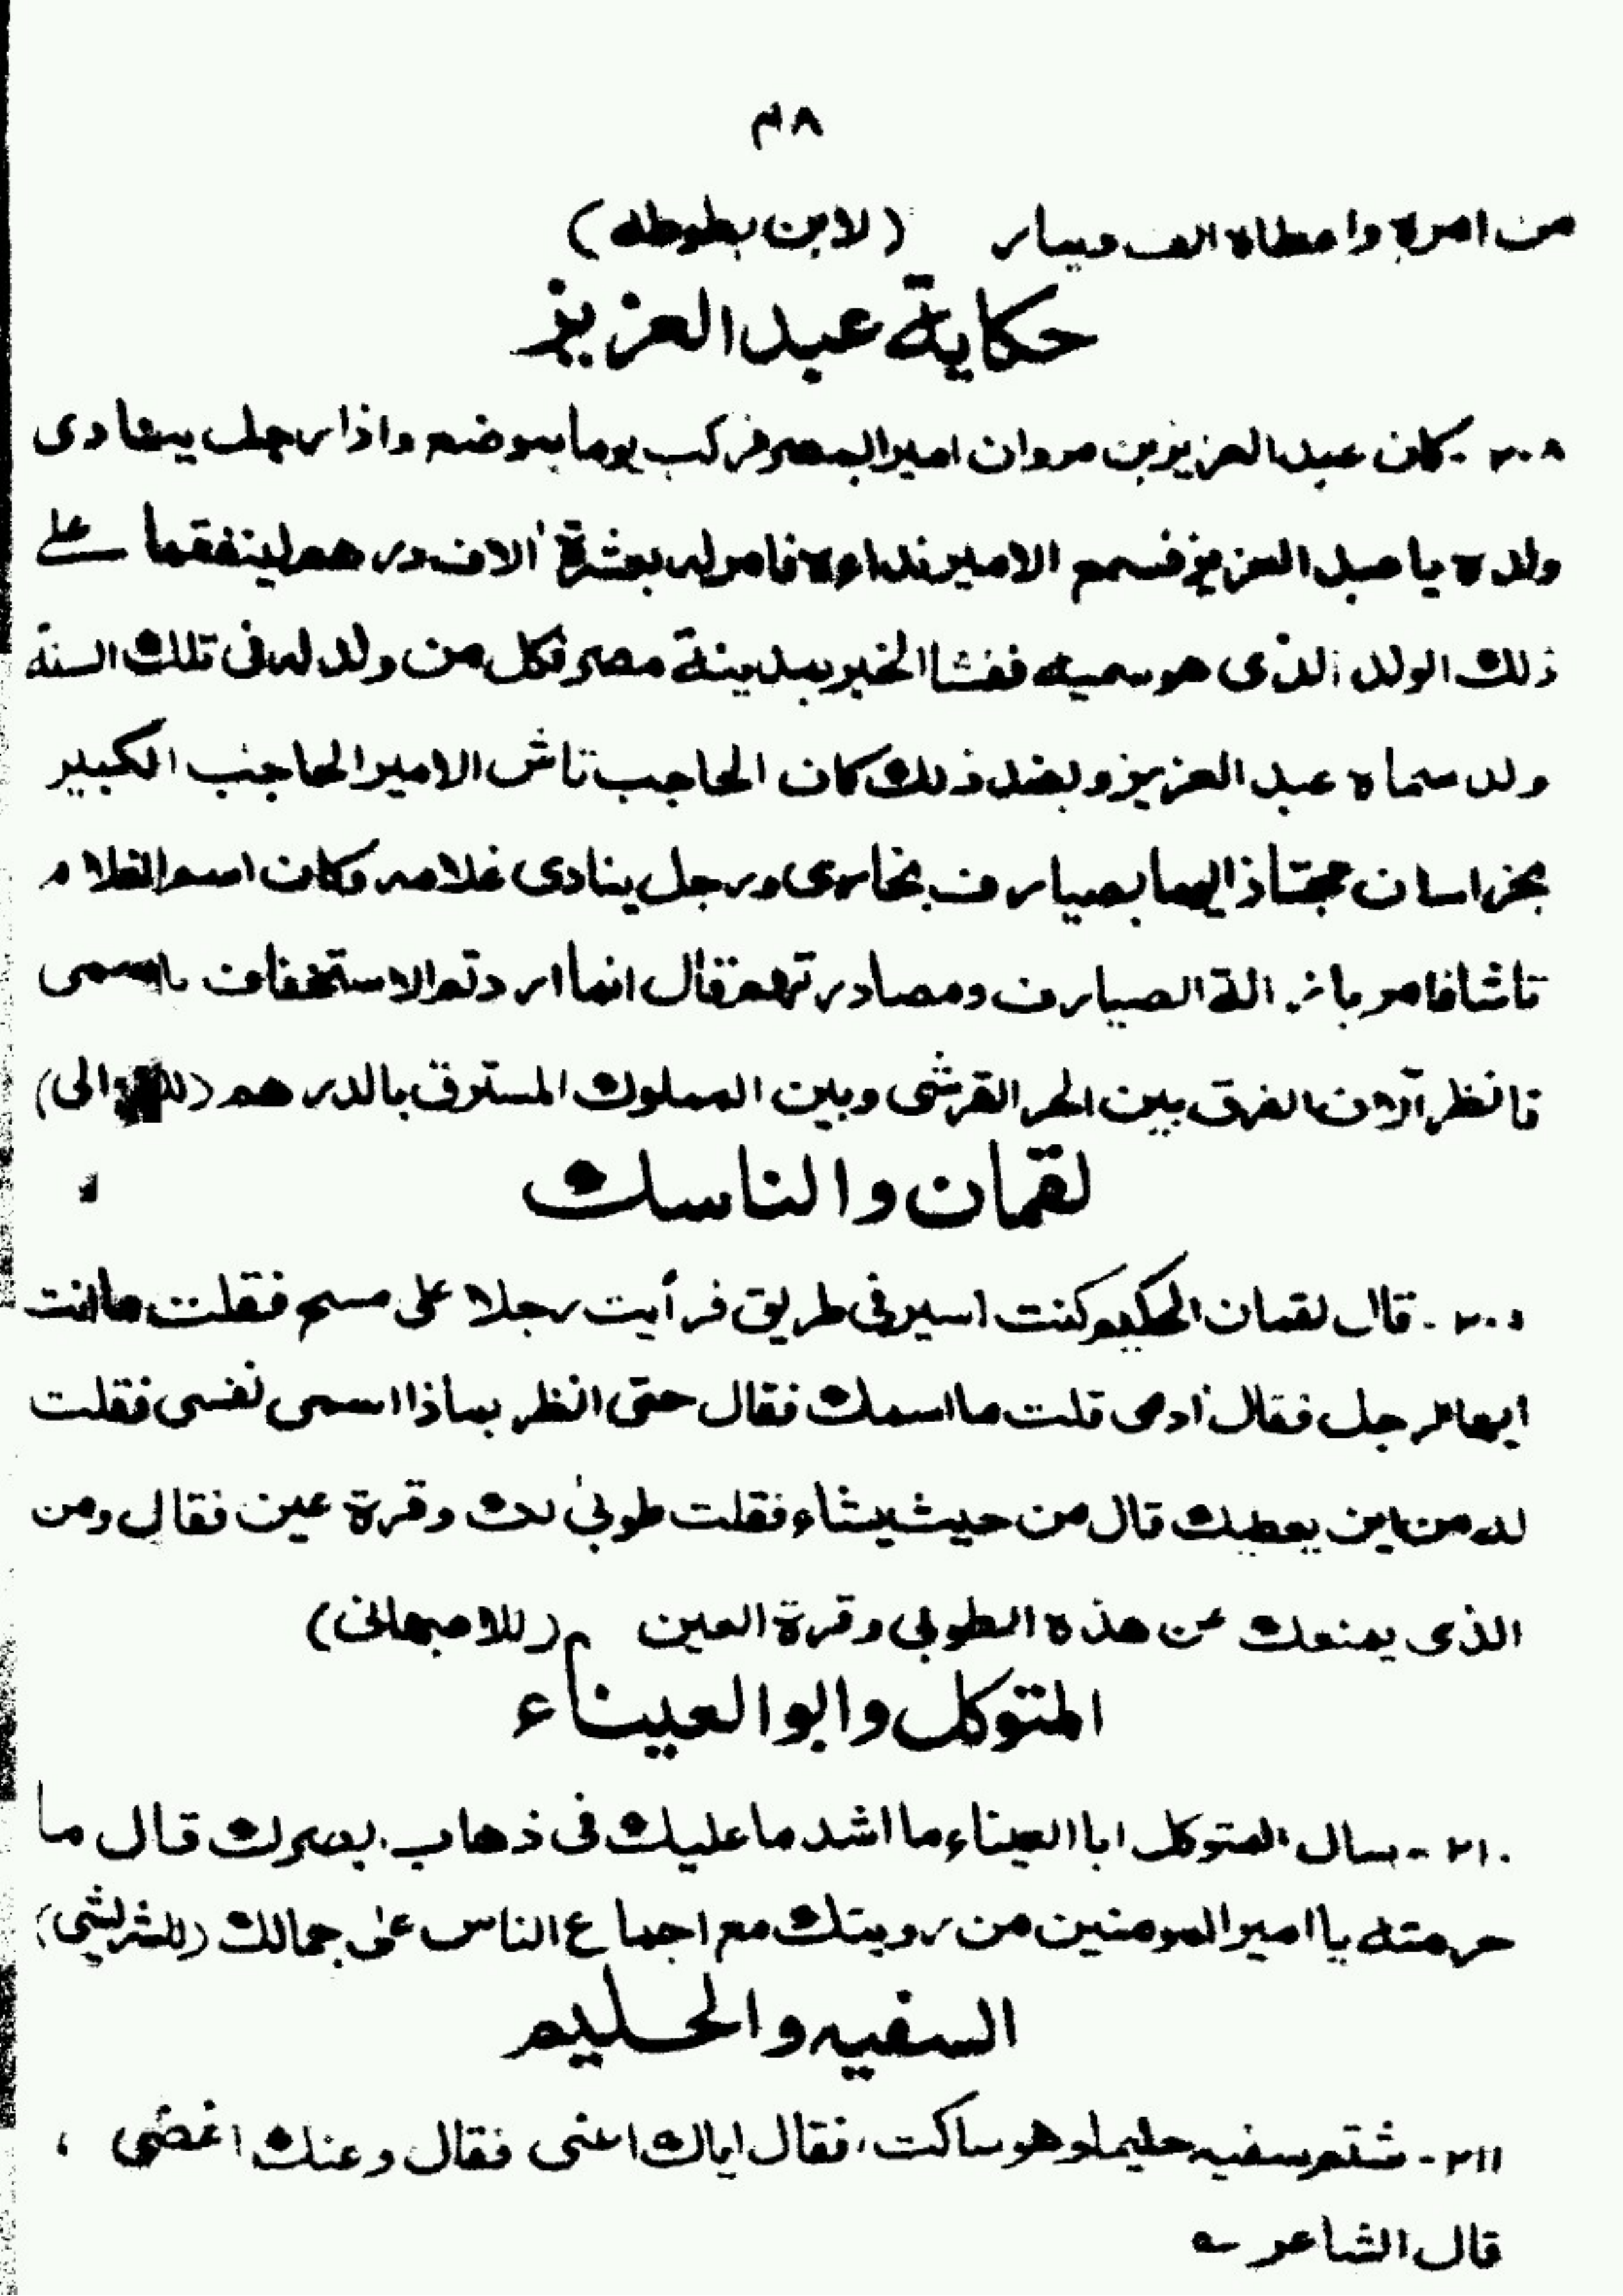 ٨٣
من امره واعطاه الف دينار (لابن بطوطه)
حكاية عبد العزيز
٢٠٨ - كان عبد العزيز بن مروان امير المصر فركب يوما بموضع واذا رجل ينادى
ولده يا عبد العزيز فسمع الامير نداءه فامر له بعشرة الاف درهم لينفقها على
ذلك الولد الذى هو سميه ففشا الخبر بمدينة مصر فكل من ولد له فى تلك السنة
ولد سماه عبد العزيز وبضد ذلك كان الحاجب تاش الامير الحاجب الكبير
بخراسان مجتاذ اليها بصيارف بخارى ورجل ينادى غلامه وكان اسم الغلام
تاشا فامر بازالة الصيارف ومصادرتهم فقال انما اردتم الاستخفاف باسمى
فانظر آلان الفرق بين الحر القرشى وبين المملوك المسترق بالدرهم
لقمان والناسك
٢٠٩ - قال لقمان الحكيم كنت اسير فى طريق فرأيت رجلا على مسح فقلت ما انت
ايها الرجل فقال ادمى قلت ما اسمك فقال حتى انظر بماذا اسمى نفسى فقلت
له من اين يعطيك قال من حيث يشاء فقلت طوبى لك وقرة عين فقال ومن
الذى يمنعك عن هذه الطوبى وقرة العين (للاصبهانى)
المتوكل وابوالعيناء
٢١٠ - سال المتوكل ابا العيناء ما اشد ما عليك فى ذهاب بصرك قال ما
حرمته يا امير المومنين من رويتك مع اجماع الناس على جمالك (للشريشى)
السفيه والحليم
٢١١ - شتم سفيه حليما وهو ساكت، فقال اياك اعنى فقال وعنك اغضى ،
قال الشاعر ـه